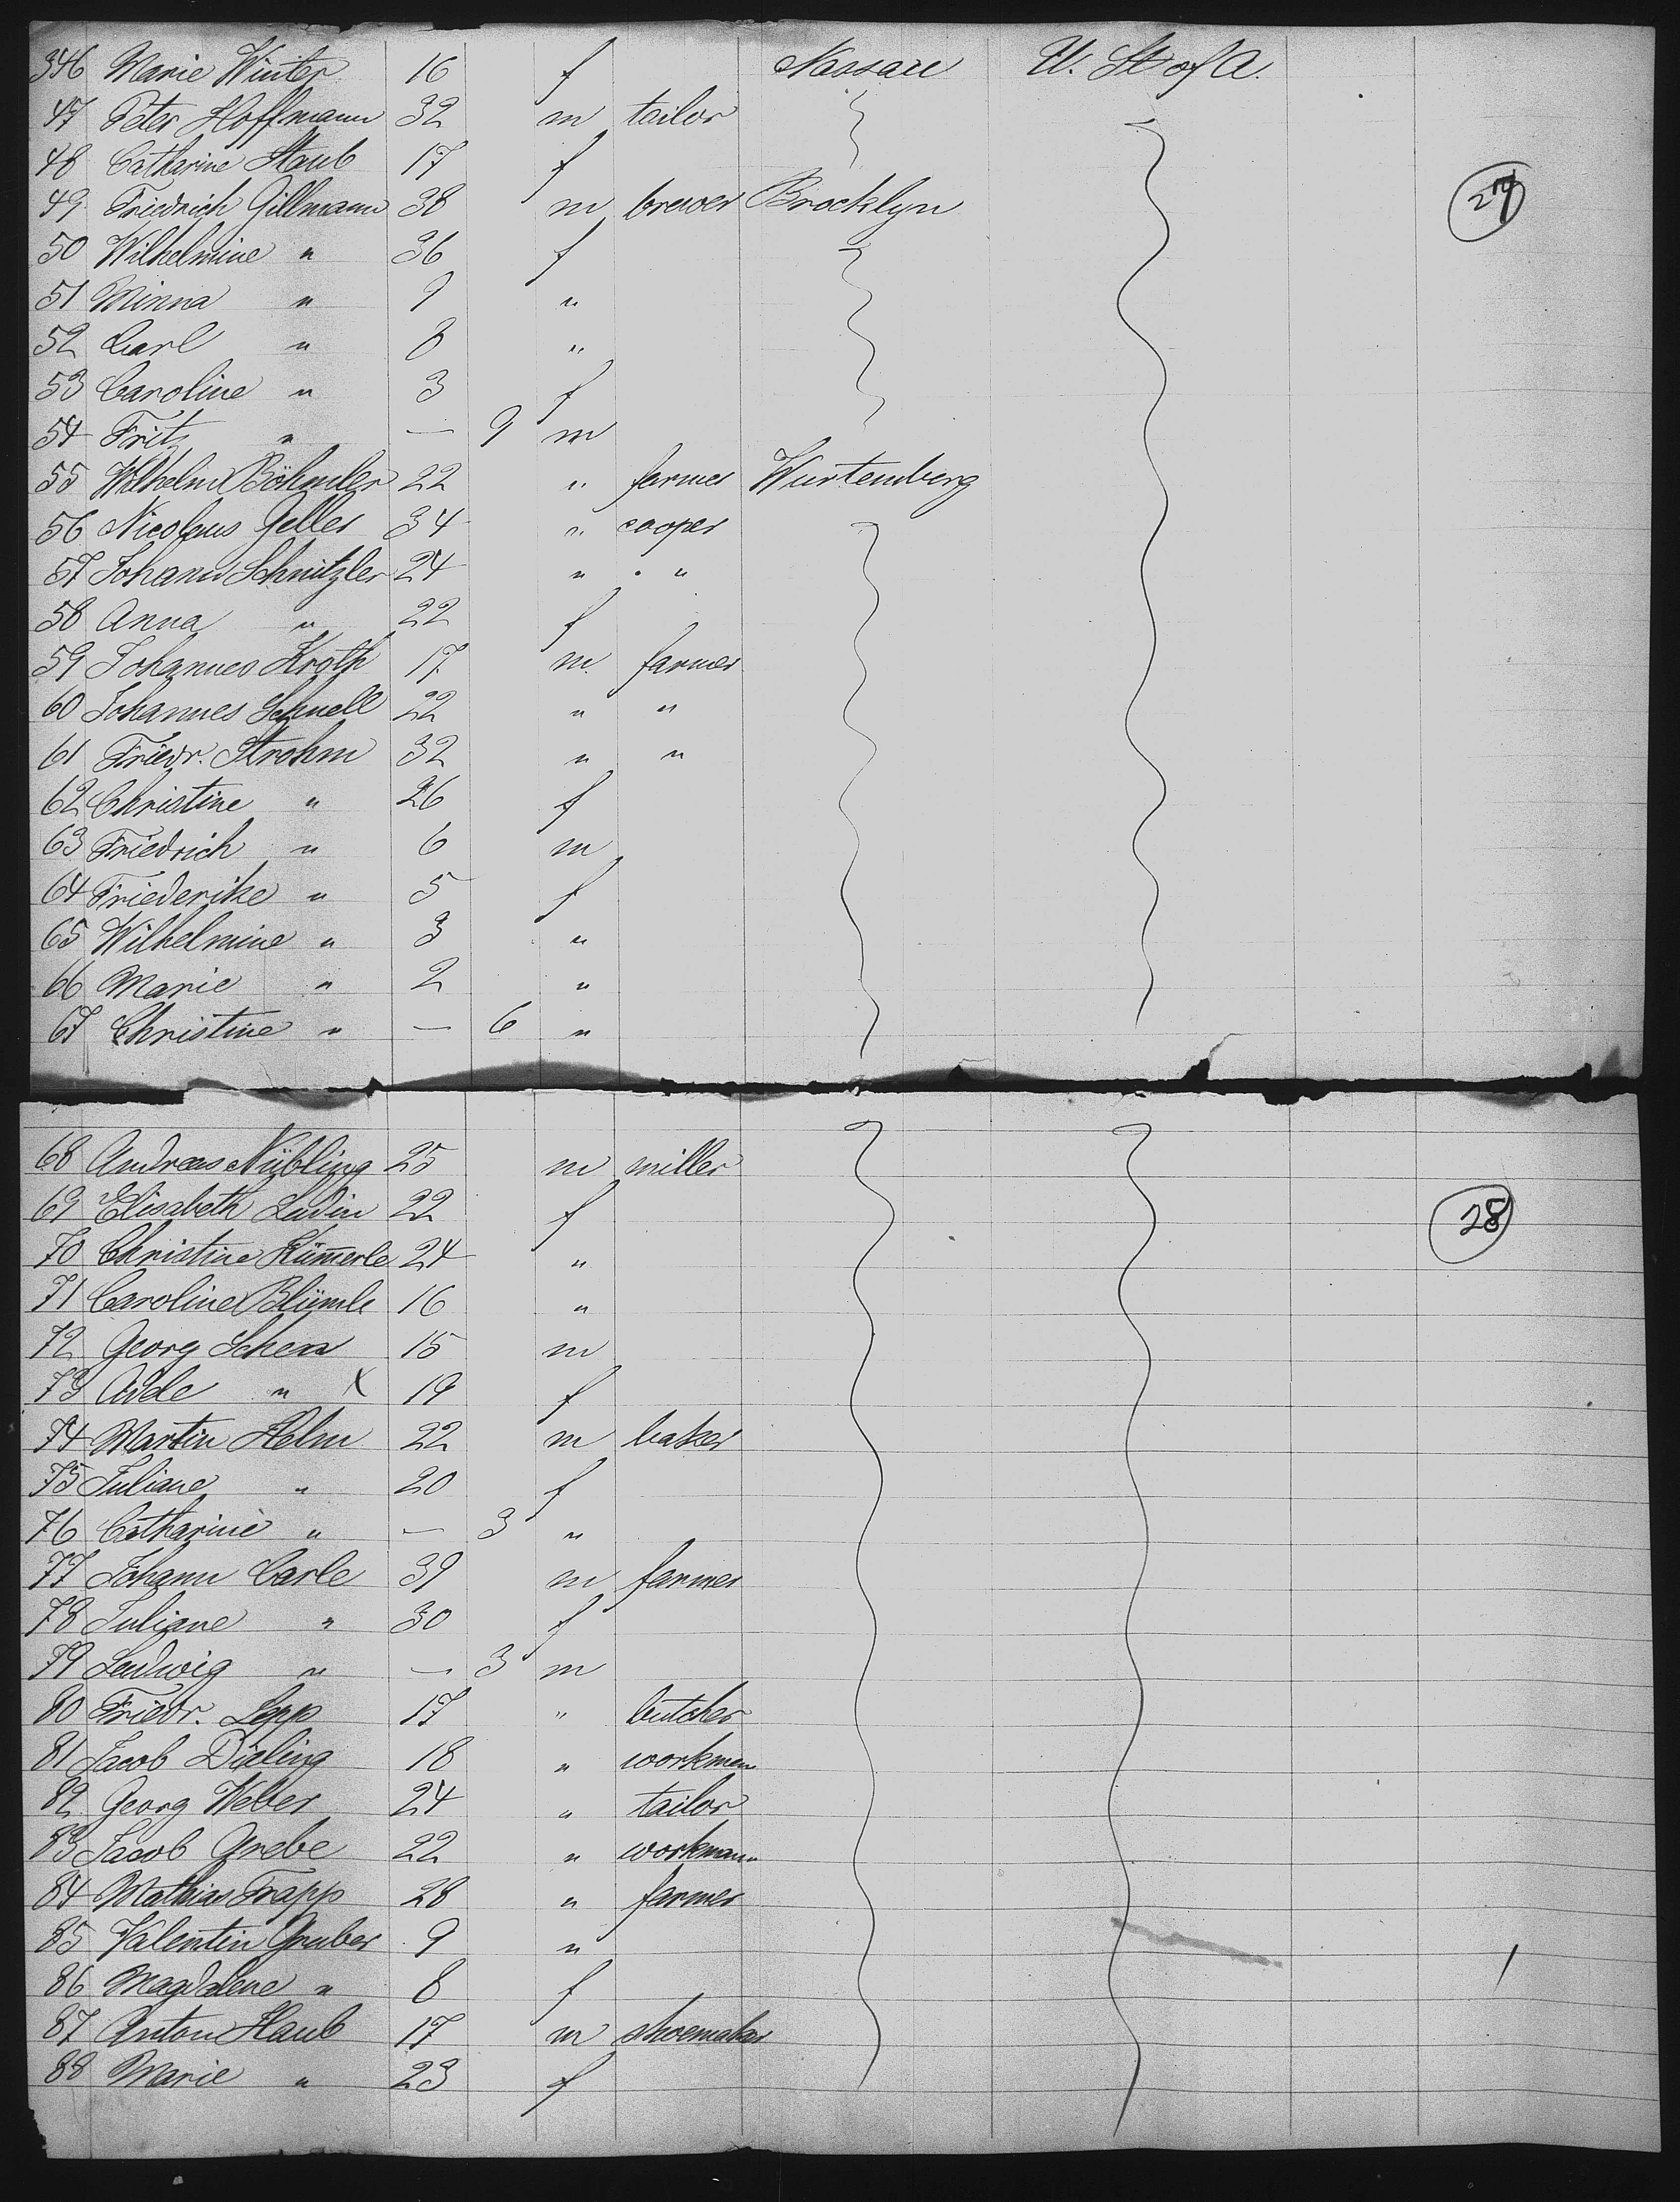 346 Marie Winter 16 f Nassau U. St of A.
47 Peter Hoffmann 32 m tailor
48 Catharine Staub 17 f
49 Friedrich Gillmann 38 m brewer Brocklyn
27
50 Wilhelmine " 36 f
51 Minna " 9 "
52 Carl " 8 "
53 Caroline " 3 f
54 Fritz " — 9 m
55 Wilhelm Böhmler 22 " farmer Wurtemberg
56 Nicolaus Geller 34 " cooper
57 Johann Schnitzler 24 " "
58 Anna " 22 f
59 Johannes Kroth 17 m. farmer
60 Johannes Schnell 22 " "
61 Friedr. Strohm 32 " "
62 Christine " 26 f
63 Friedrich " 6 m
64 Friederike " 5 f
65 Wilhelmine " 3 "
66 Marie " 2 "
67 Christine " — 6 "
68 Andreas Nübling 25 m miller
69 Elisabeth Ludin 22 f
28
70 Christine Kümerle 24 "
71 Caroline Blümle 16 "
72 Georg 15 m
73 Adele " x 19 f
74 Martin Helm 22 m baker
75 Juliane " 20 f
76 Catharine " — 3 "
77 Johann Carle 39 m farmer
78 Juliane " 30 f
79 Ludwig " — 3 m
80 Friedr. Lepp 17 " butcher
81 Jacob Dieling 18 " workman
82 Georg Weber 24 " tailor
83 Jacob Grebe 22 " workmann
84 Mathias Trapp 28 " farmer
85 Valentin Gruber 9 "
86 Magdalene " 8 f
87 Anton Haub 17 m shoemaker
88 Marie " 23 f